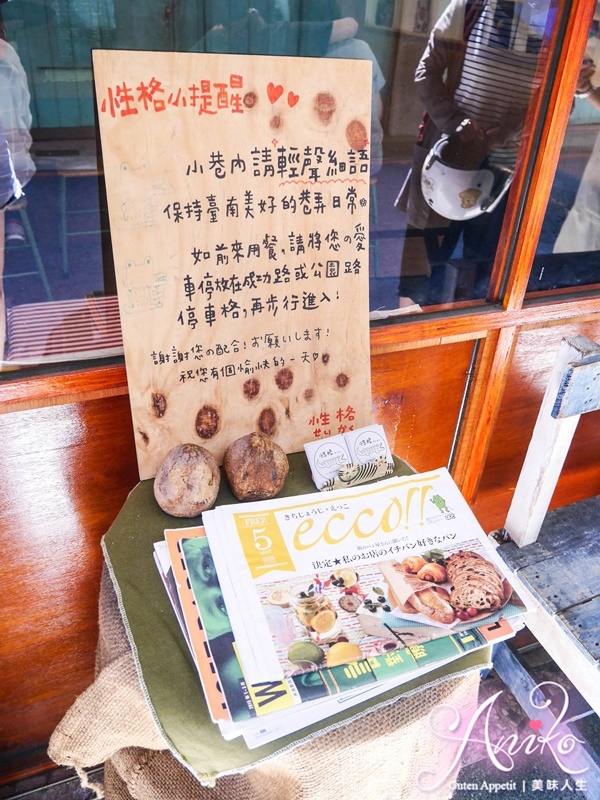 性格小提醒
小巷內請輕聲細語
保持臺南美好的巷弄日常。
如前來用餐,請將您の愛
車停放在成功路或公園路
停車格,再步行進入!
謝謝您の配合!お願いします!
祝您有個愉快的一天
性格
せいかく
FREE
5
きちじょうじ・えっこ
ecco!!
決定★私のお店のイチバン好きなパン
W
Aniko
Guten Appetit | 美味人生